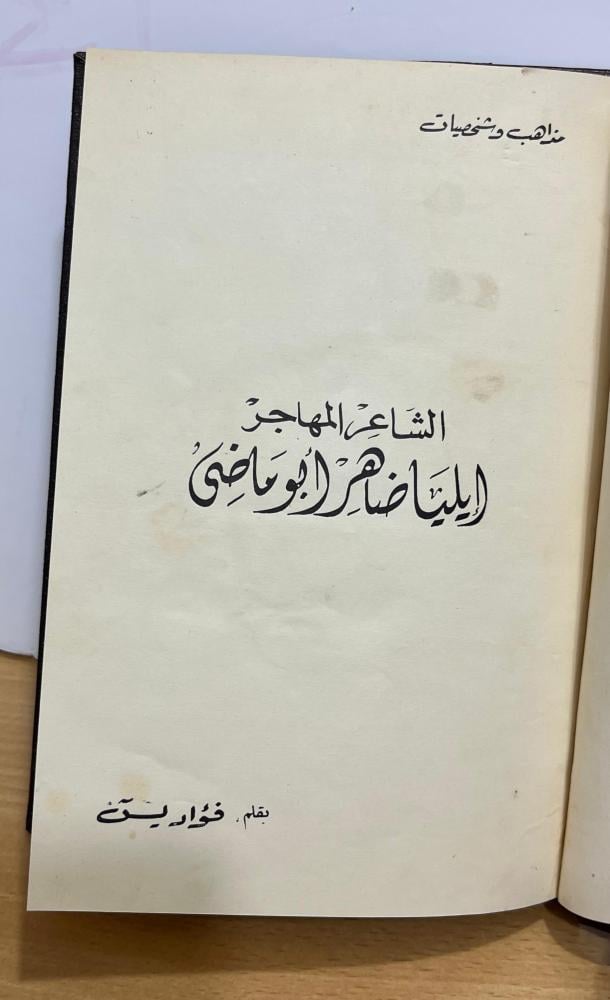 مذاهب وشخصيات
الشَاعِر المهاجرْ
إيليَا ضاهِر أبو مَاضِي
بقلم، فؤاد يسۤ